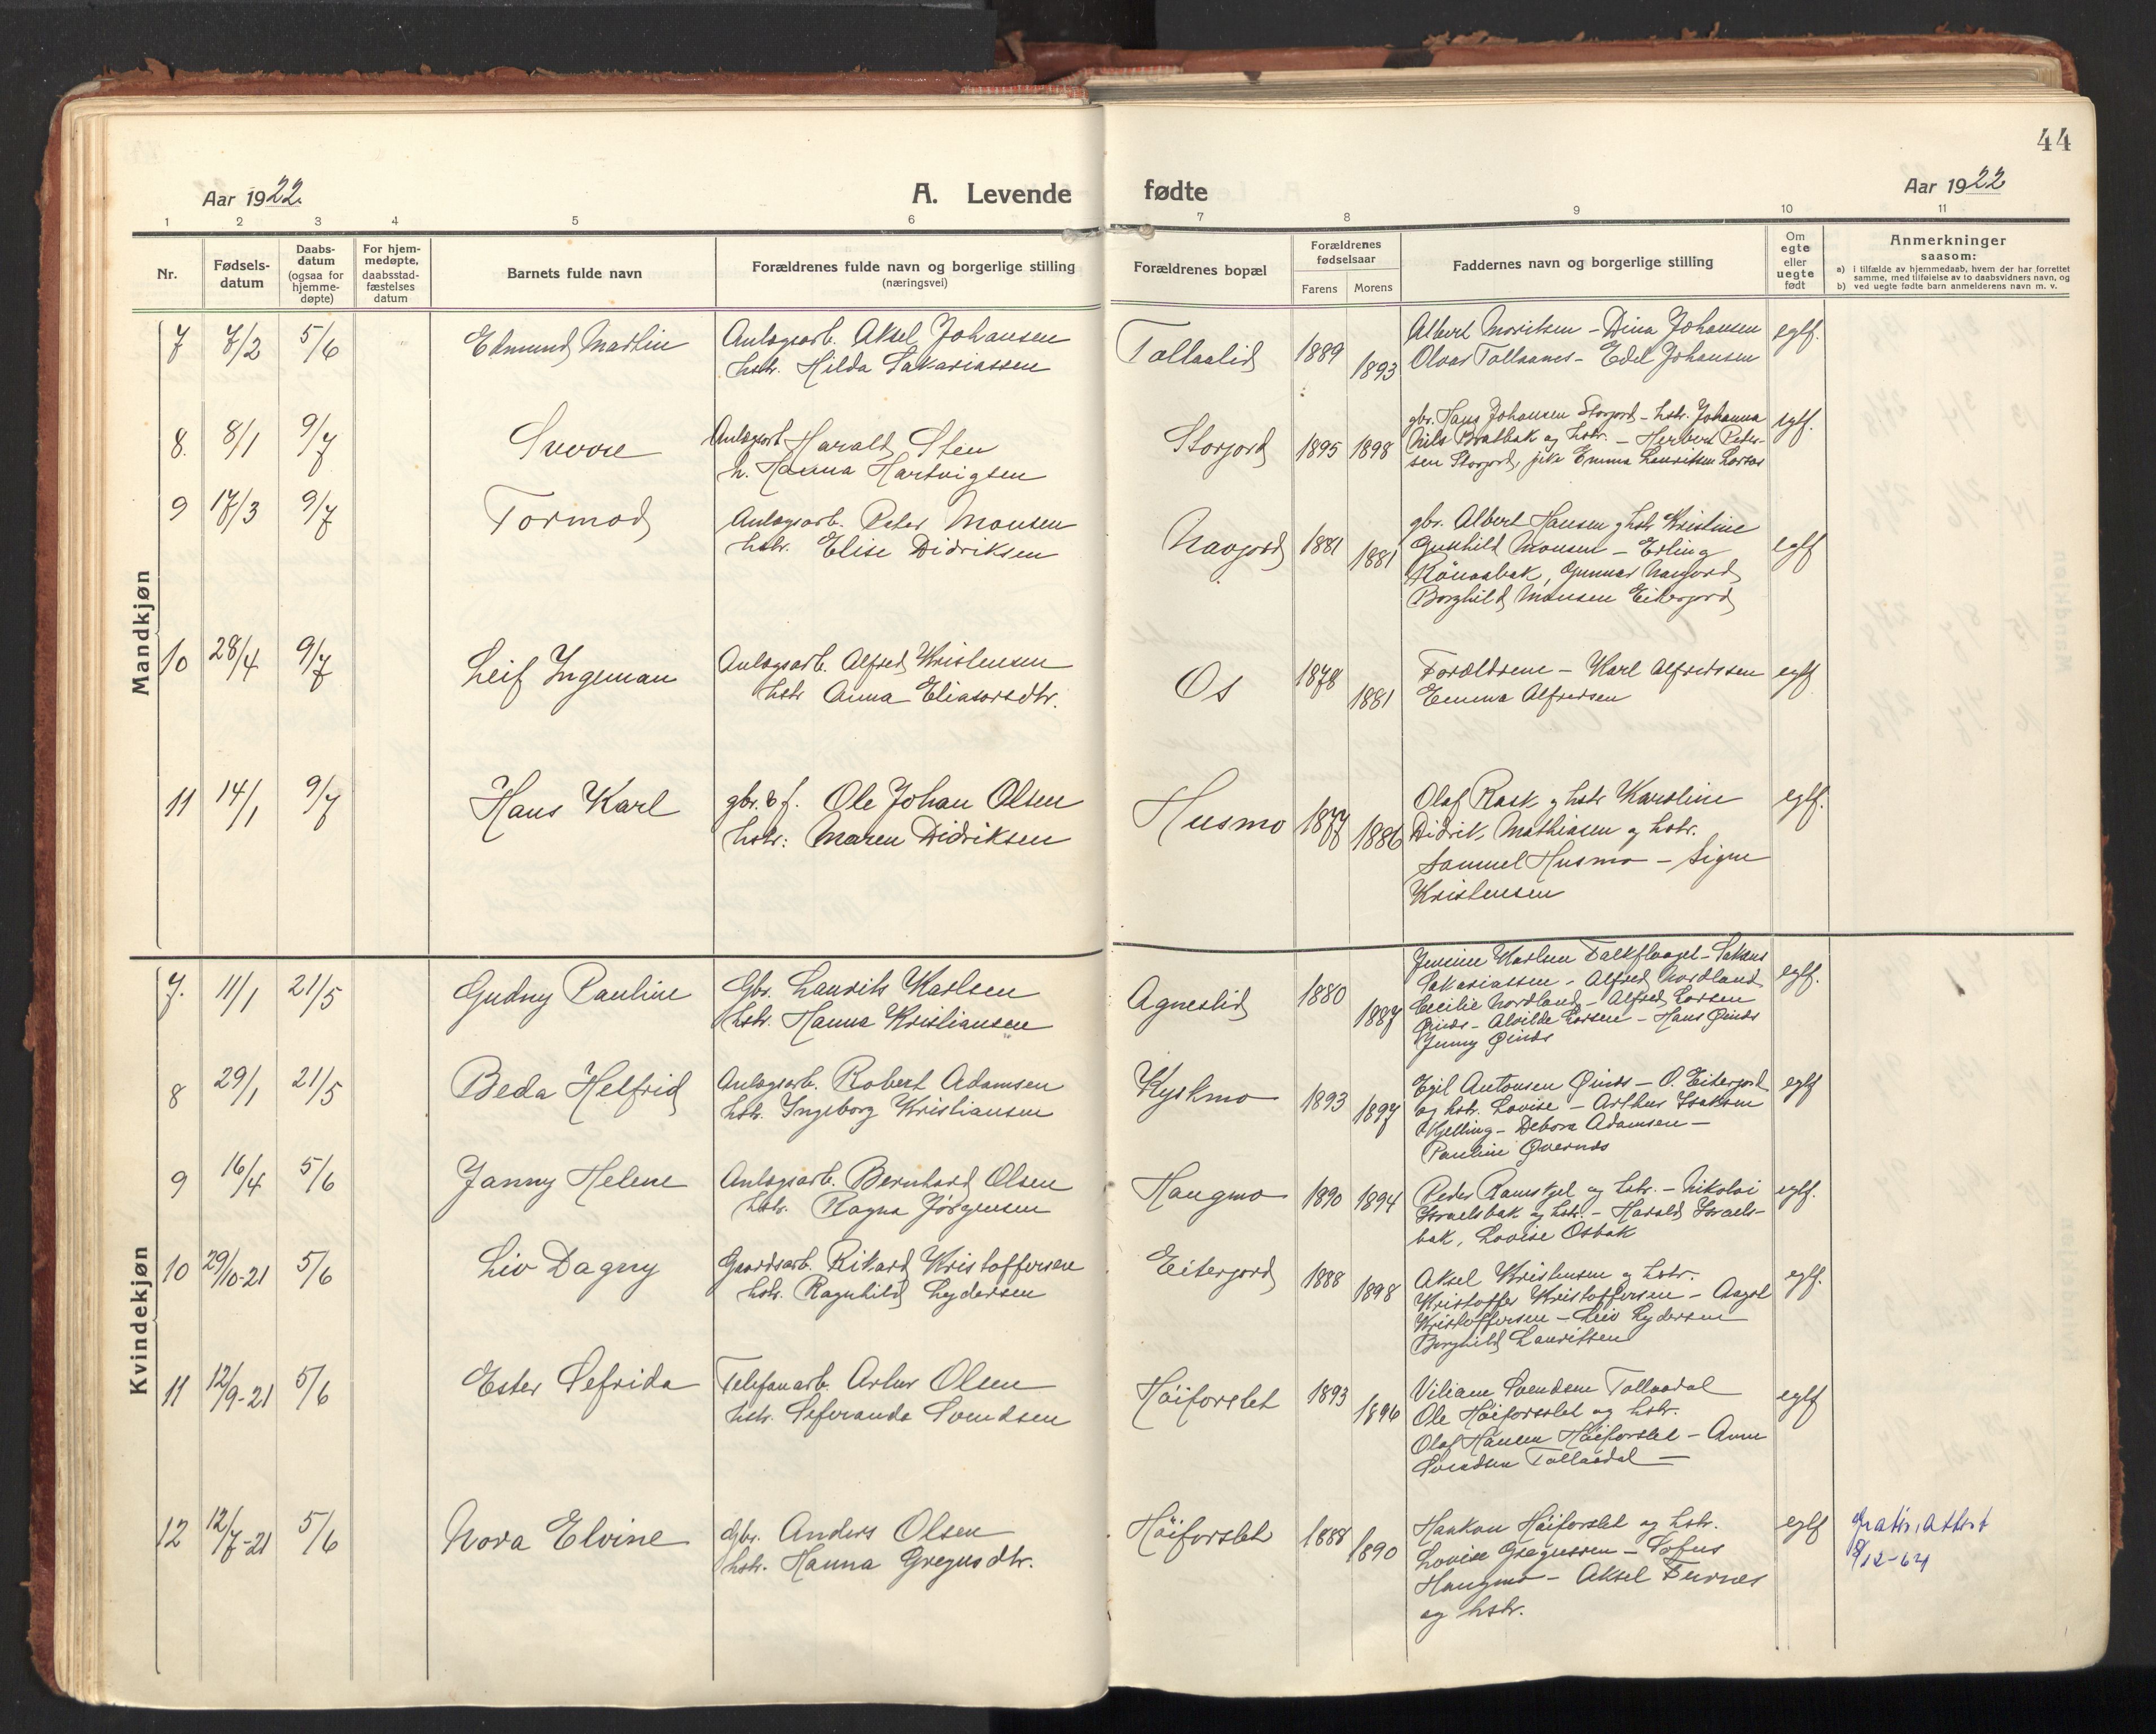 44
Aar 1922.
A. Levende fødte
Aar 1922
1 2 3 4 5 6 7 8 9 10 11
Nr.
Fødsels-
datum
Daabs-
datum
(ogsaa for
hjemme-
døpte)
For hjem-
medøpte,
daabsstad-
fæstelses
datum
Barnets fulde navn
Forældrenes fulde navn og borgerlige stilling
(næringsvei)
Forældrenes bopæl
Forældrenes
fødselsaar
Farens Morens
Faddernes navn og borgerlige stilling
Om
egte
eller
uegte
født
Anmerkninger
saasom:
a) I tilfælde av hjemmedaab, hvem der har forrettet
samme, med tilføielse av to daabsvidners navn, og
b) ved uegte fødte barn anmelderens navn m. v.
Mandkjøn
7 7/2 5/6 Edmund Martin
Anlægsarb. Aksel Johansen
hstr. Hilda Sakariassen
Tollaalid 1889 1893
Albert Moritsen - Dina Johansen
Olvar Tollaanes - Edel Johansen
egtf.
8. 8/1 9/7 Sverre
Anlægsarb Harald Sten
h. Hanna Hartvigsen
Storjord 1895 1898
gbr. Hans Johansen Storjord - hstr. Johanna
Nils Bratbak og hstr. - Herbert Peter-
sen Storjord, pike Emma Lauritsen
egtf.
9 17/3 9/7 Tormod
Anlægsarb. Peter Monsen
hstr. Elise Didriksen
Navjord 1881 1881
gbr. Albert Hansen g hstr Kristine
Gunhild Monsen - Erling
Rönaabak, Gunnar Navjord
Borghild Monsen Eiterjord
egtf
10 28/4 9/7 Leif Ingeman
Anlægsarb. Alfred Kristensen
hstr Anna Eliasorsdtr.
Os 1878 1881
Forældrene - Karl Alfredssen
Emma Alfredsen
egtf
11 14/1 9/7 Hans Karl
gbr. & f. Ole Johan Olsen
hstr: Maren Didriksen
Husmo 1877 1886
Olaf Rask g hstr Karoline
Didrik Mathiasen g hstr.
Samuel Husmo - Signe
Kristensen
egtf.
Kvindekjøn
7. 11/1 21/5 Gudny Pauline
Gbr. Laurits Karlsen
hstr. Hanna Kristiansen
Agneslid 1880 1887
Karlsen Falkflaaget - Sakaus
Sakariassen - Alfred Nordland
Cecilie Nordland - Alfred Larsen
Øinds - Alvilde Larsen - Hans Øinds
Jenny Øinds
egtf.
8 29/1 21/5 Beda Helfrid
Anlægsarb. Robert Adamsen
hstr. Ingeborg Kristiansen
Kyskmo 1893 1897
Egil Antonsen Øinds - O. Eiterjord
og hstr. Lovise - Arthur Isaksen
Kjelling - Debora Adamsen -
Pauline Øvernds
egtf
9 16/4 5/6 Janny Helene
Anlægsarb. Bernhard Olsen
hstr. Ragna Jörgensen
Haugmo 1890 1894
Peder Ramskjel og hstr. - Nikolai
Israelsbak og hstr. - Harald Israels-
bak, Lovise Osbak
egtf.
10 29/10-21 5/6 Liv Dagny
Gaardsarb. Rikard Kristoffersen
hstr. Ragnhild Lydersen
Eiterjord 1888 1898
Aksel Kristensen g hstr.
Kristoffer Kristoffersen - Aagot
Kristoffersen - Leiv Lydersen
Borghild Lauritsen
egtf.
11 12/9-21 5/6 Ester Sefrida
Telefonarb. Artur Olsen
hstr. Seferanda Svendsen
Höiforslet 1893 1896
Viliam Svendsen Tollaadal
Ole Höiforslet og hstr.
Olaf Hansen Höiforslet - Anna
Svendsen Tollaadal -
egtf
12 12/7-21 5/6 Nora Elvine
Gbr. Anders Olsen
hstr. Hanna Gregusdtr.
Höiforslet 1888 1890
Haakon Höiforslet og hstr.
Lovise Gregussen - Sofus
Haugmo - Aksel Furnes
og hstr.
egtf
Gratis. attest
8/12-64